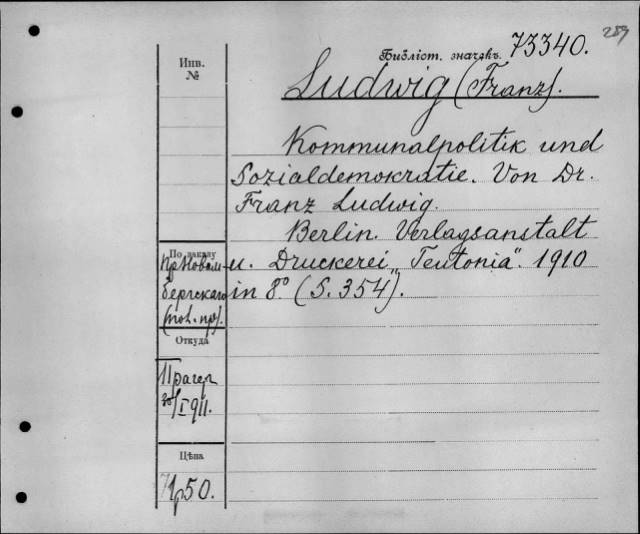 289
Библіот. значекъ. 73340.
Инв.
№
Ludwig (Franz).
Kommunalpolitik und
Sozialdemokratie. Von Dr.
Franz Ludwig.
Berlin. Verlagsanstalt
u. Druckerei „Teutonia“. 1910
in 8° (S. 354).
По заказу
пр. Новом-
бергскаго
Откуда
Прагер
30/I 911.
Цѣна
1р50.